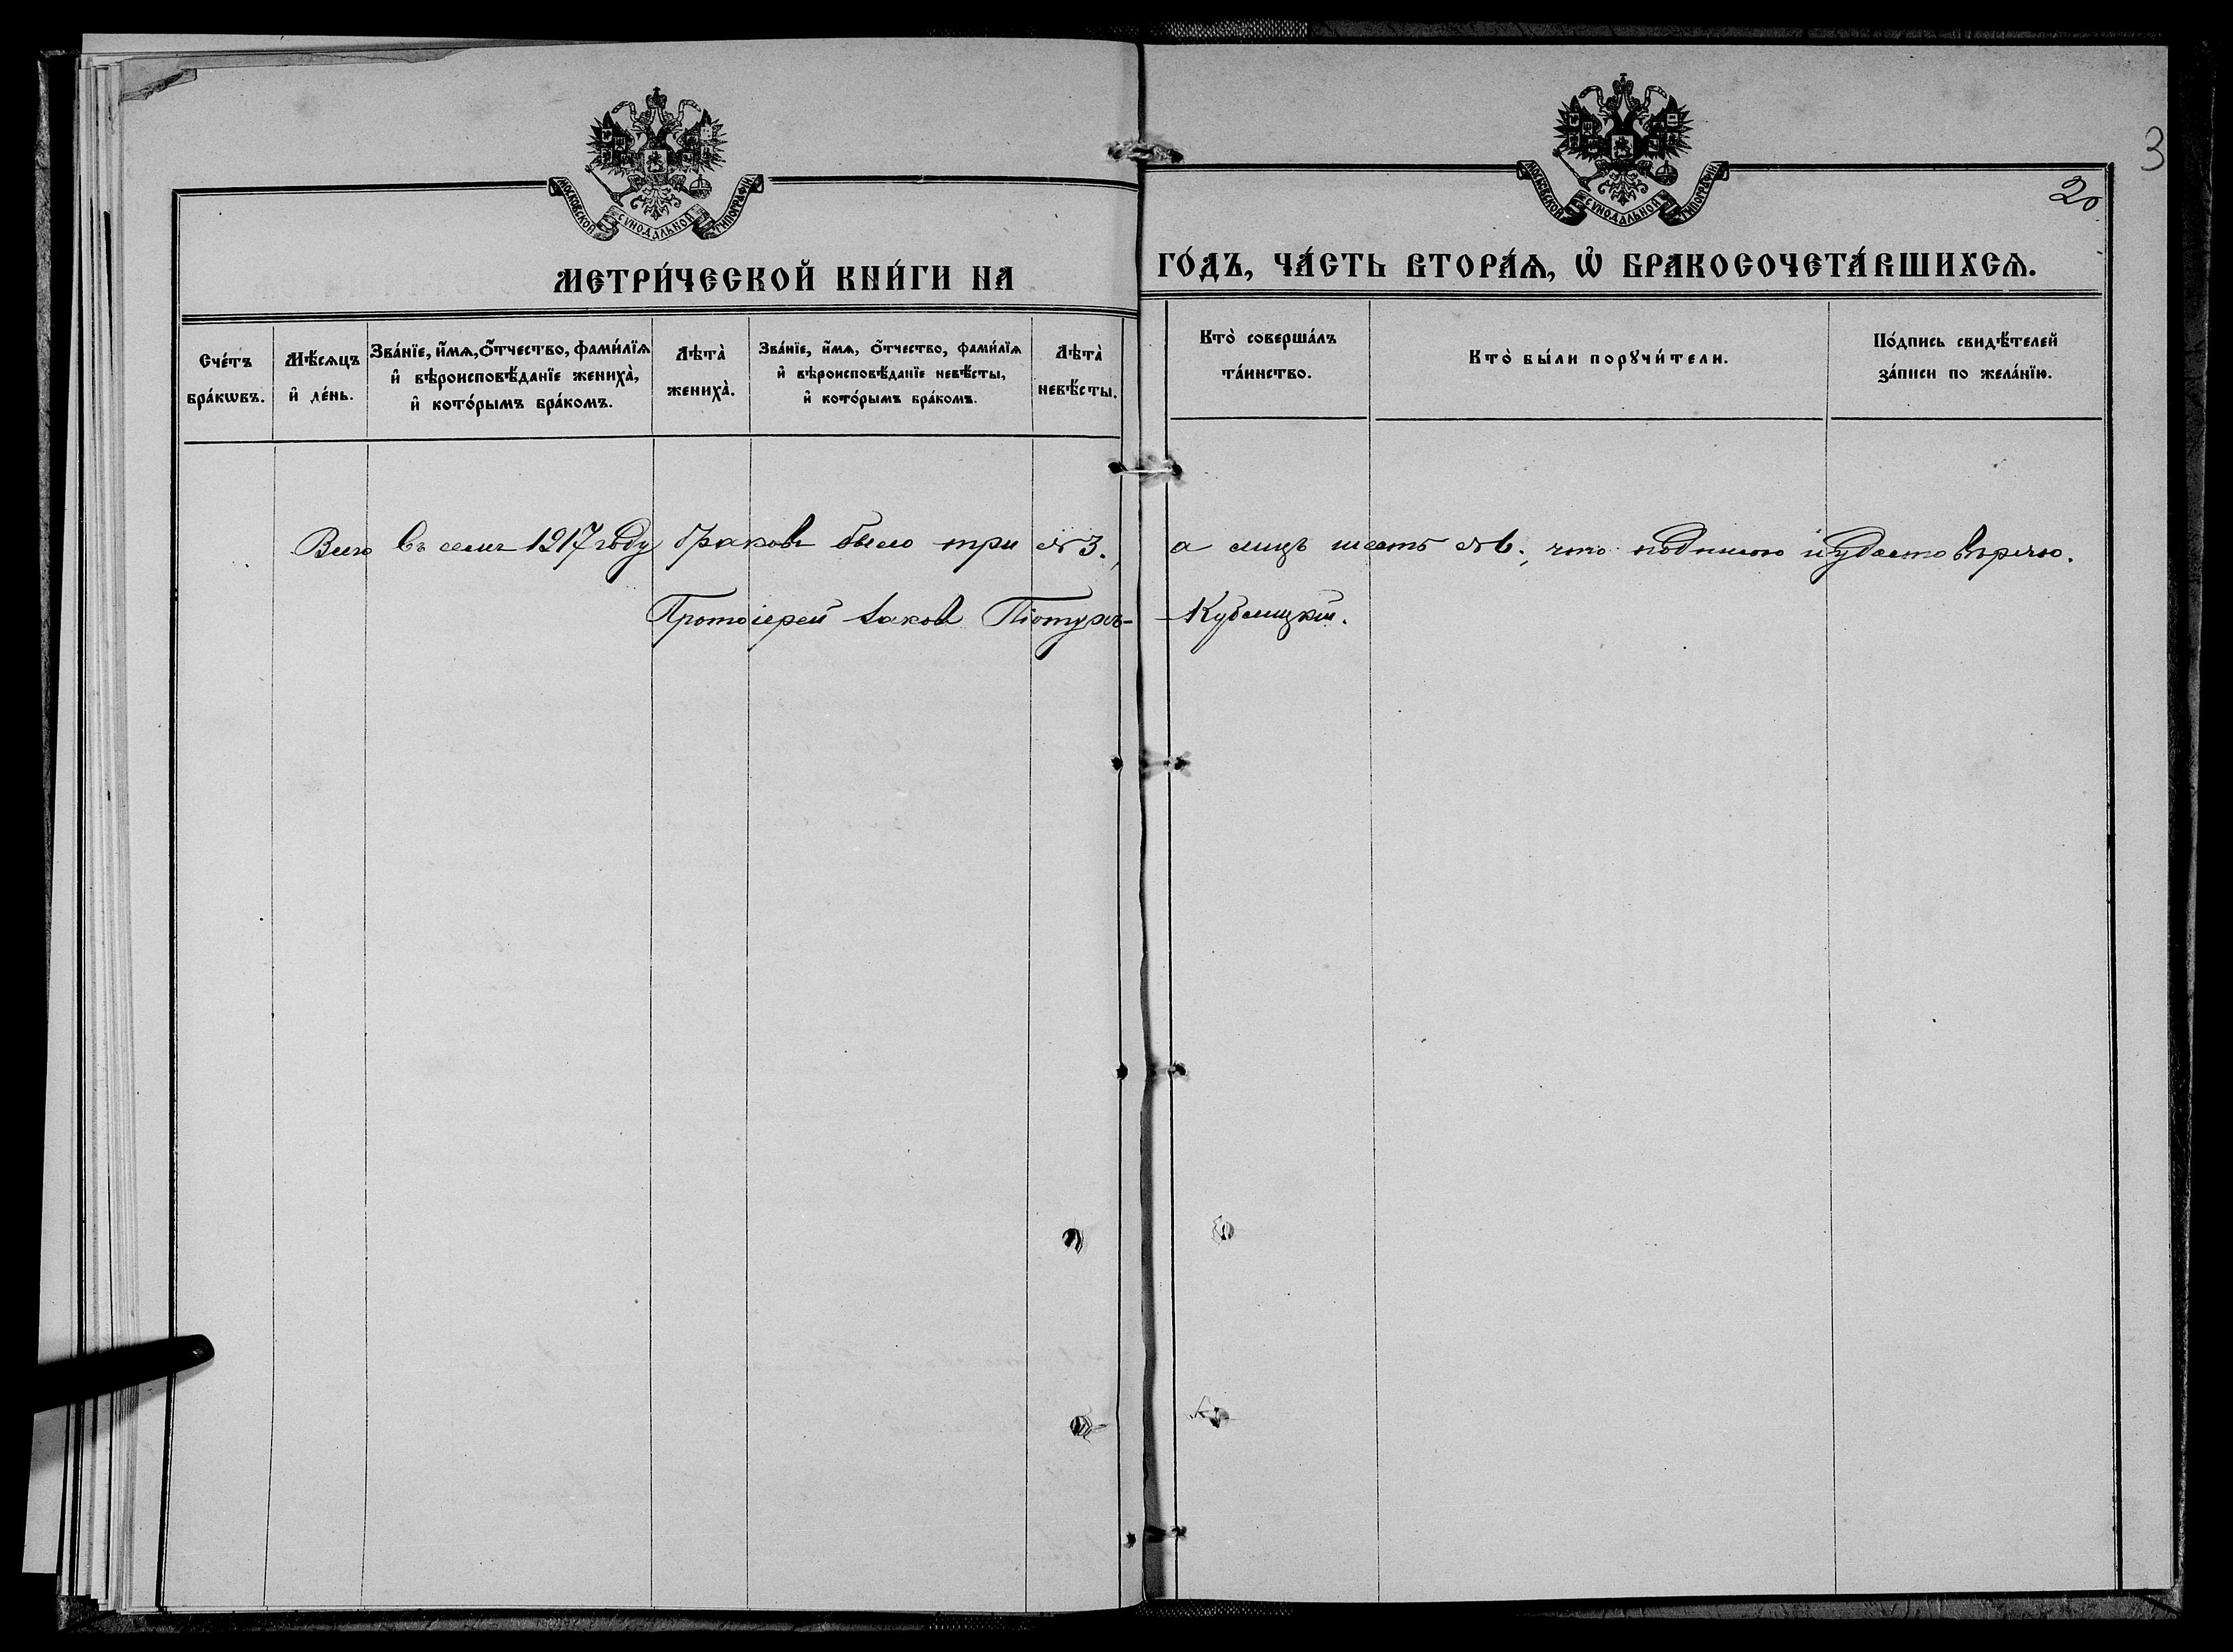 3
20
МОСКОВСКОЙ СѴНОДАЛЬНОЙ ТИПОГРАФІИ
МОСКОВСКОЙ СѴНОДАЛЬНОЙ ТИПОГРАФІИ
МЕТРИ́ЧЕСКОЙ КНИ́ГИ НА ГО́ДЪ, ЧА́СТЬ ВТОРА́Ѧ, Ѿ БРАКОСОЧЕТА́ВШИХСѦ.
Сче́тъ
бра́кѡвъ.
Мѣ́сѧцъ
и҆ де́нь.
Зва́нїе, и҆́мѧ, ѻ҆́тчество, фами́лїѧ
и҆ вѣроисповѣ́данїе жениха̀,
и҆ кото́рымъ бра́комъ.
Лѣта̀
жениха̀.
Зва́нїе, и҆́мѧ, ѻ҆́тчество, фами́лїѧ
и҆ вѣроисповѣ́данїе невѣ́сты,
и҆ кото́рымъ бра́комъ.
Лѣта̀
невѣ́сты.
Кто̀ соверша́лъ
та́инство.
Кто̀ бы́ли порꙋчи́тели.
По́дпись свидѣ́телей
за́писи по жела́нїю.
Всего въ семъ 1917 году браковъ было три № 3., а лицъ шесть № 6., что подписью и удостовѣряю.
Протоіерей Іаковъ Кубелицкій.